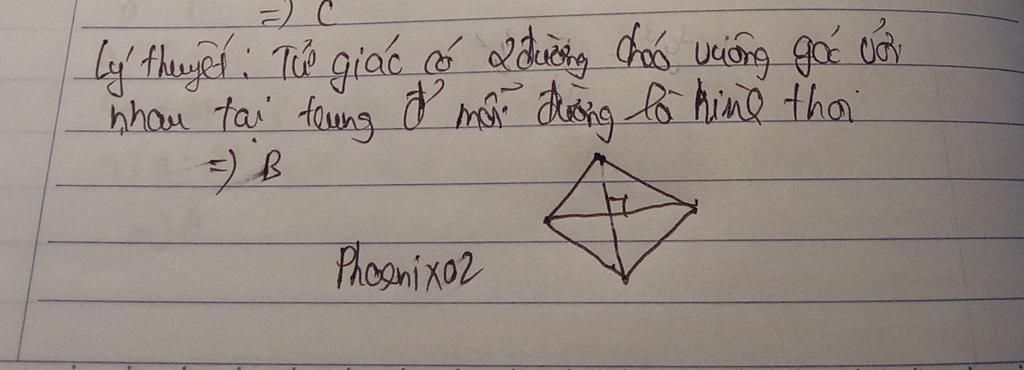 =) C
Lý thuyết: Tứ giác có 2 đường chéo vuông góc với
nhau tại trung đ' mỗi đường là hình thoi
=) B
Phoenix02